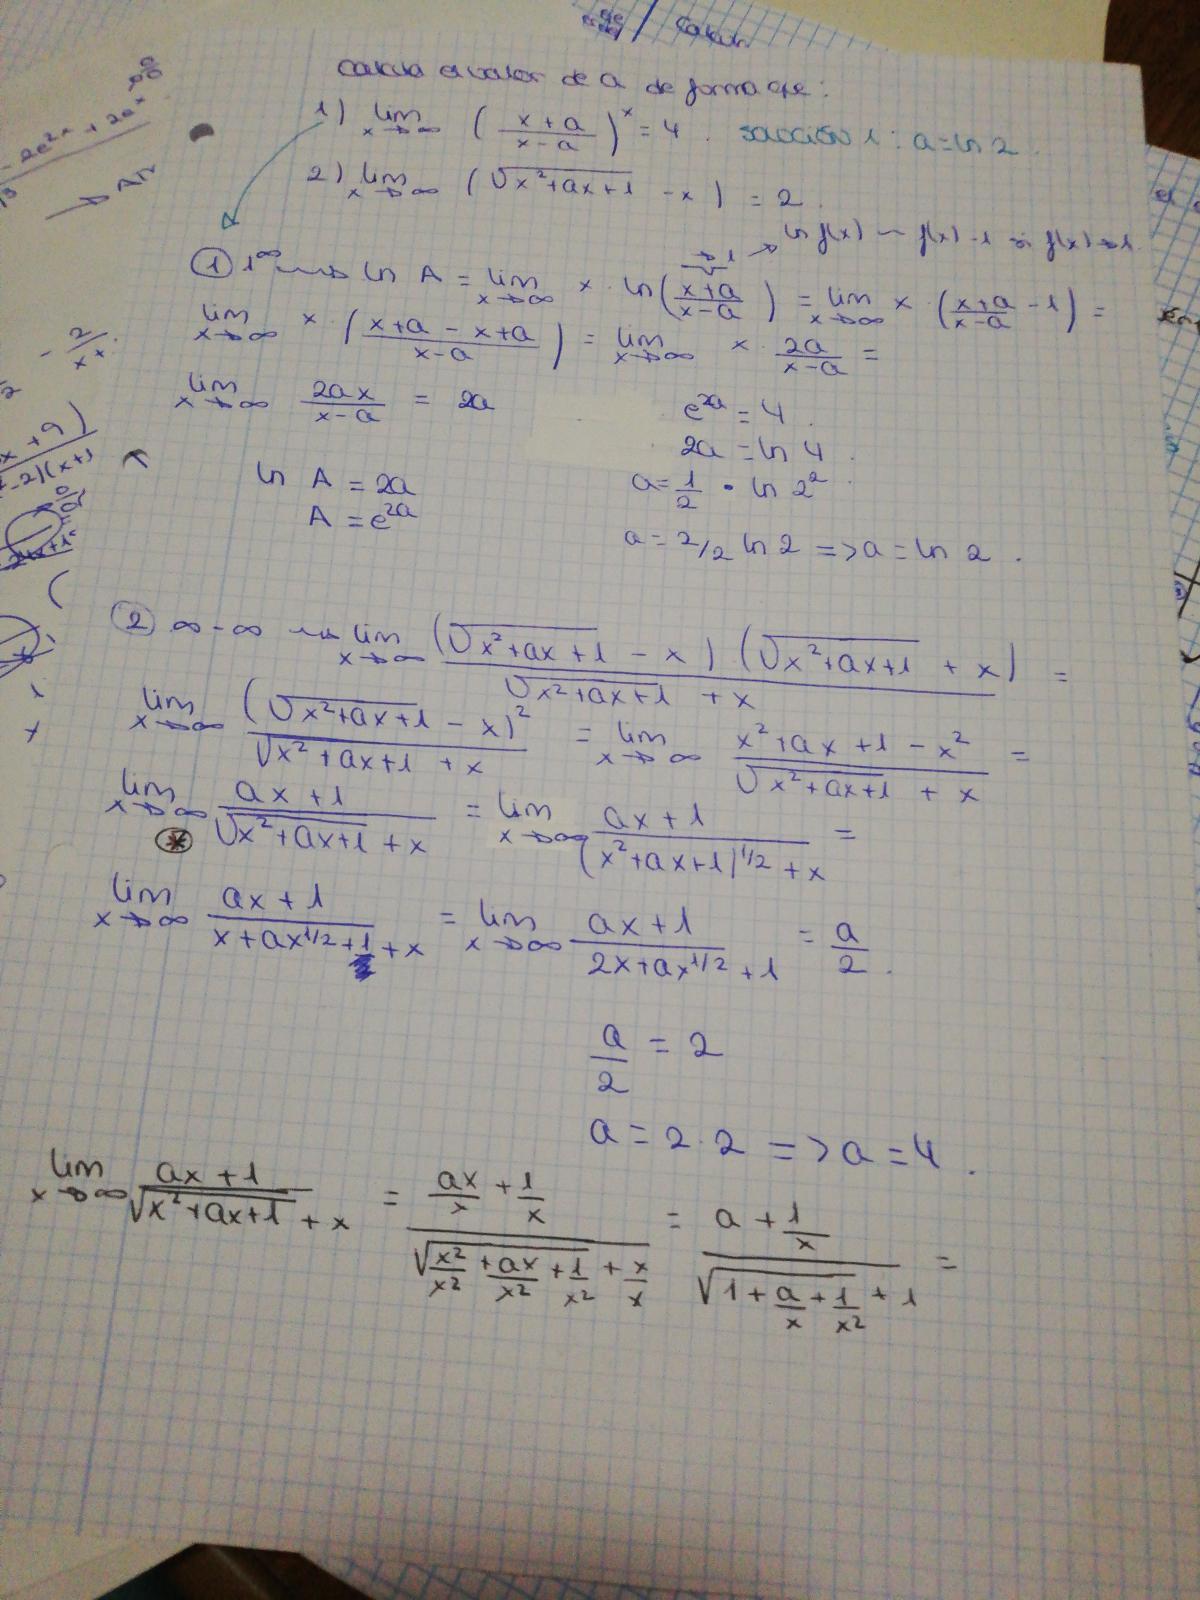 Calcula el valor de a de forma que:
1) lim x→∞ (x+a / x-a)^x = 4. SOLUCIÓN 1: a = ln 2.
2) lim x→∞ (√x²+ax+1 - x) = 2.
ln f(x) ~ f(x)-1 si f(x)→1.
→1
① 1^∞ ⇝ ln A = lim x→∞ x · ln(x+a / x-a) = lim x→∞ x · (x+a / x-a - 1) =
lim x→∞ x · (x+a-x+a / x-a) = lim x→∞ x · 2a / x-a =
lim x→∞ 2ax / x-a = 2a
e^2a = 4.
2a = ln 4.
ln A = 2a
a = 1/2 · ln 2².
A = e^2a
a = 2/2 ln 2 => a = ln 2.
② ∞-∞ ⇝ lim x→∞ (√x²+ax+1 - x) (√x²+ax+1 + x) / √x²+ax+1 + x =
lim x→∞ (√x²+ax+1 - x)² / √x²+ax+1 + x = lim x→∞ x²+ax+1-x² / √x²+ax+1 + x =
lim x→∞ ax+1 / √x²+ax+1 + x = lim x→∞ ax+1 / (x²+ax+1)^1/2 + x =
lim x→∞ ax+1 / x+ax^1/2+1+x = lim x→∞ ax+1 / 2x+ax^1/2+1 = a/2.
a/2 = 2
a = 2·2 => a = 4.
lim x→∞ ax+1 / √x²+ax+1 + x = ax/x + 1/x / √x²/x² + ax/x² + 1/x² + x/x = a + 1/x / √1 + a/x + 1/x² + 1 =